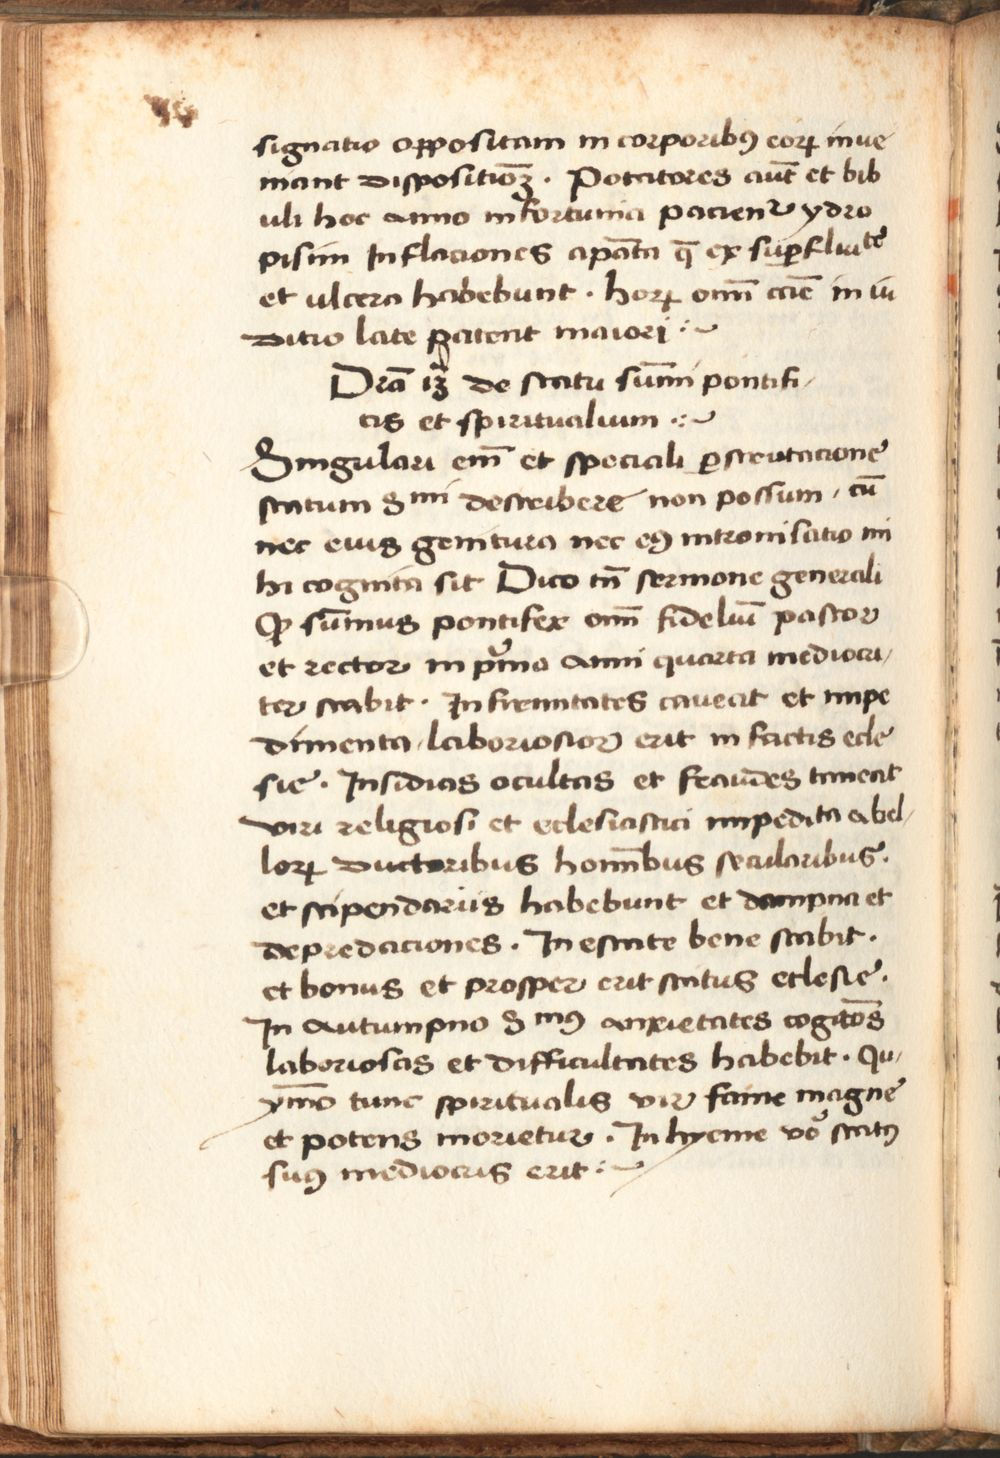 signatio oppositam in corporibꝰ eoꝝ inue
niant dispositioꝫ. Potatores aut̄ et bib
uli hoc anno infortunia pacient᷑ ydro
pisim Inflaciones apāta q̄ ex suꝑfluitᵉ
et ulcera habebunt. hoꝝ om̄ caē in iu
ditio late patent maiori :~
Dr̄a iꝫ de statu sum̄i pontifi,
cis et spiritualium :~
Singulari em̄ et speciali ꝑscrutacione
statum Sᵐⁱ describere non possum, cū
nec eius genitura nec eꝰ intronisatio mi
hi cognita sit Dico tn̄ sermone generali
Ꝙ sum̄us pontifex om̄ fideliū pastor
et rector in pᵒma anni quarta mediocri,
ter stabit. Infirmitates caveat et impe
dimenta, laboriosior erit in factis ecle
sie. Insidias ocultas et fraudes timeat
viri religiosi et eclesiastici impedita a bel,
loꝝ ductoribus homībus secularibus.
et stipendariis habebunt et dampna et
depredaciones. In estate bene stabit.
et bonus et prosper erit status eclesie.
In Autumpno Sᵐꝰ anxietates cogitōs
laboriosas et difficultates habebit. Qu,
ymō tunc spiritualis vir fame magne
et potens morietur. In hyeme vᵒo statꝰ
suꝰ mediocris erit :~